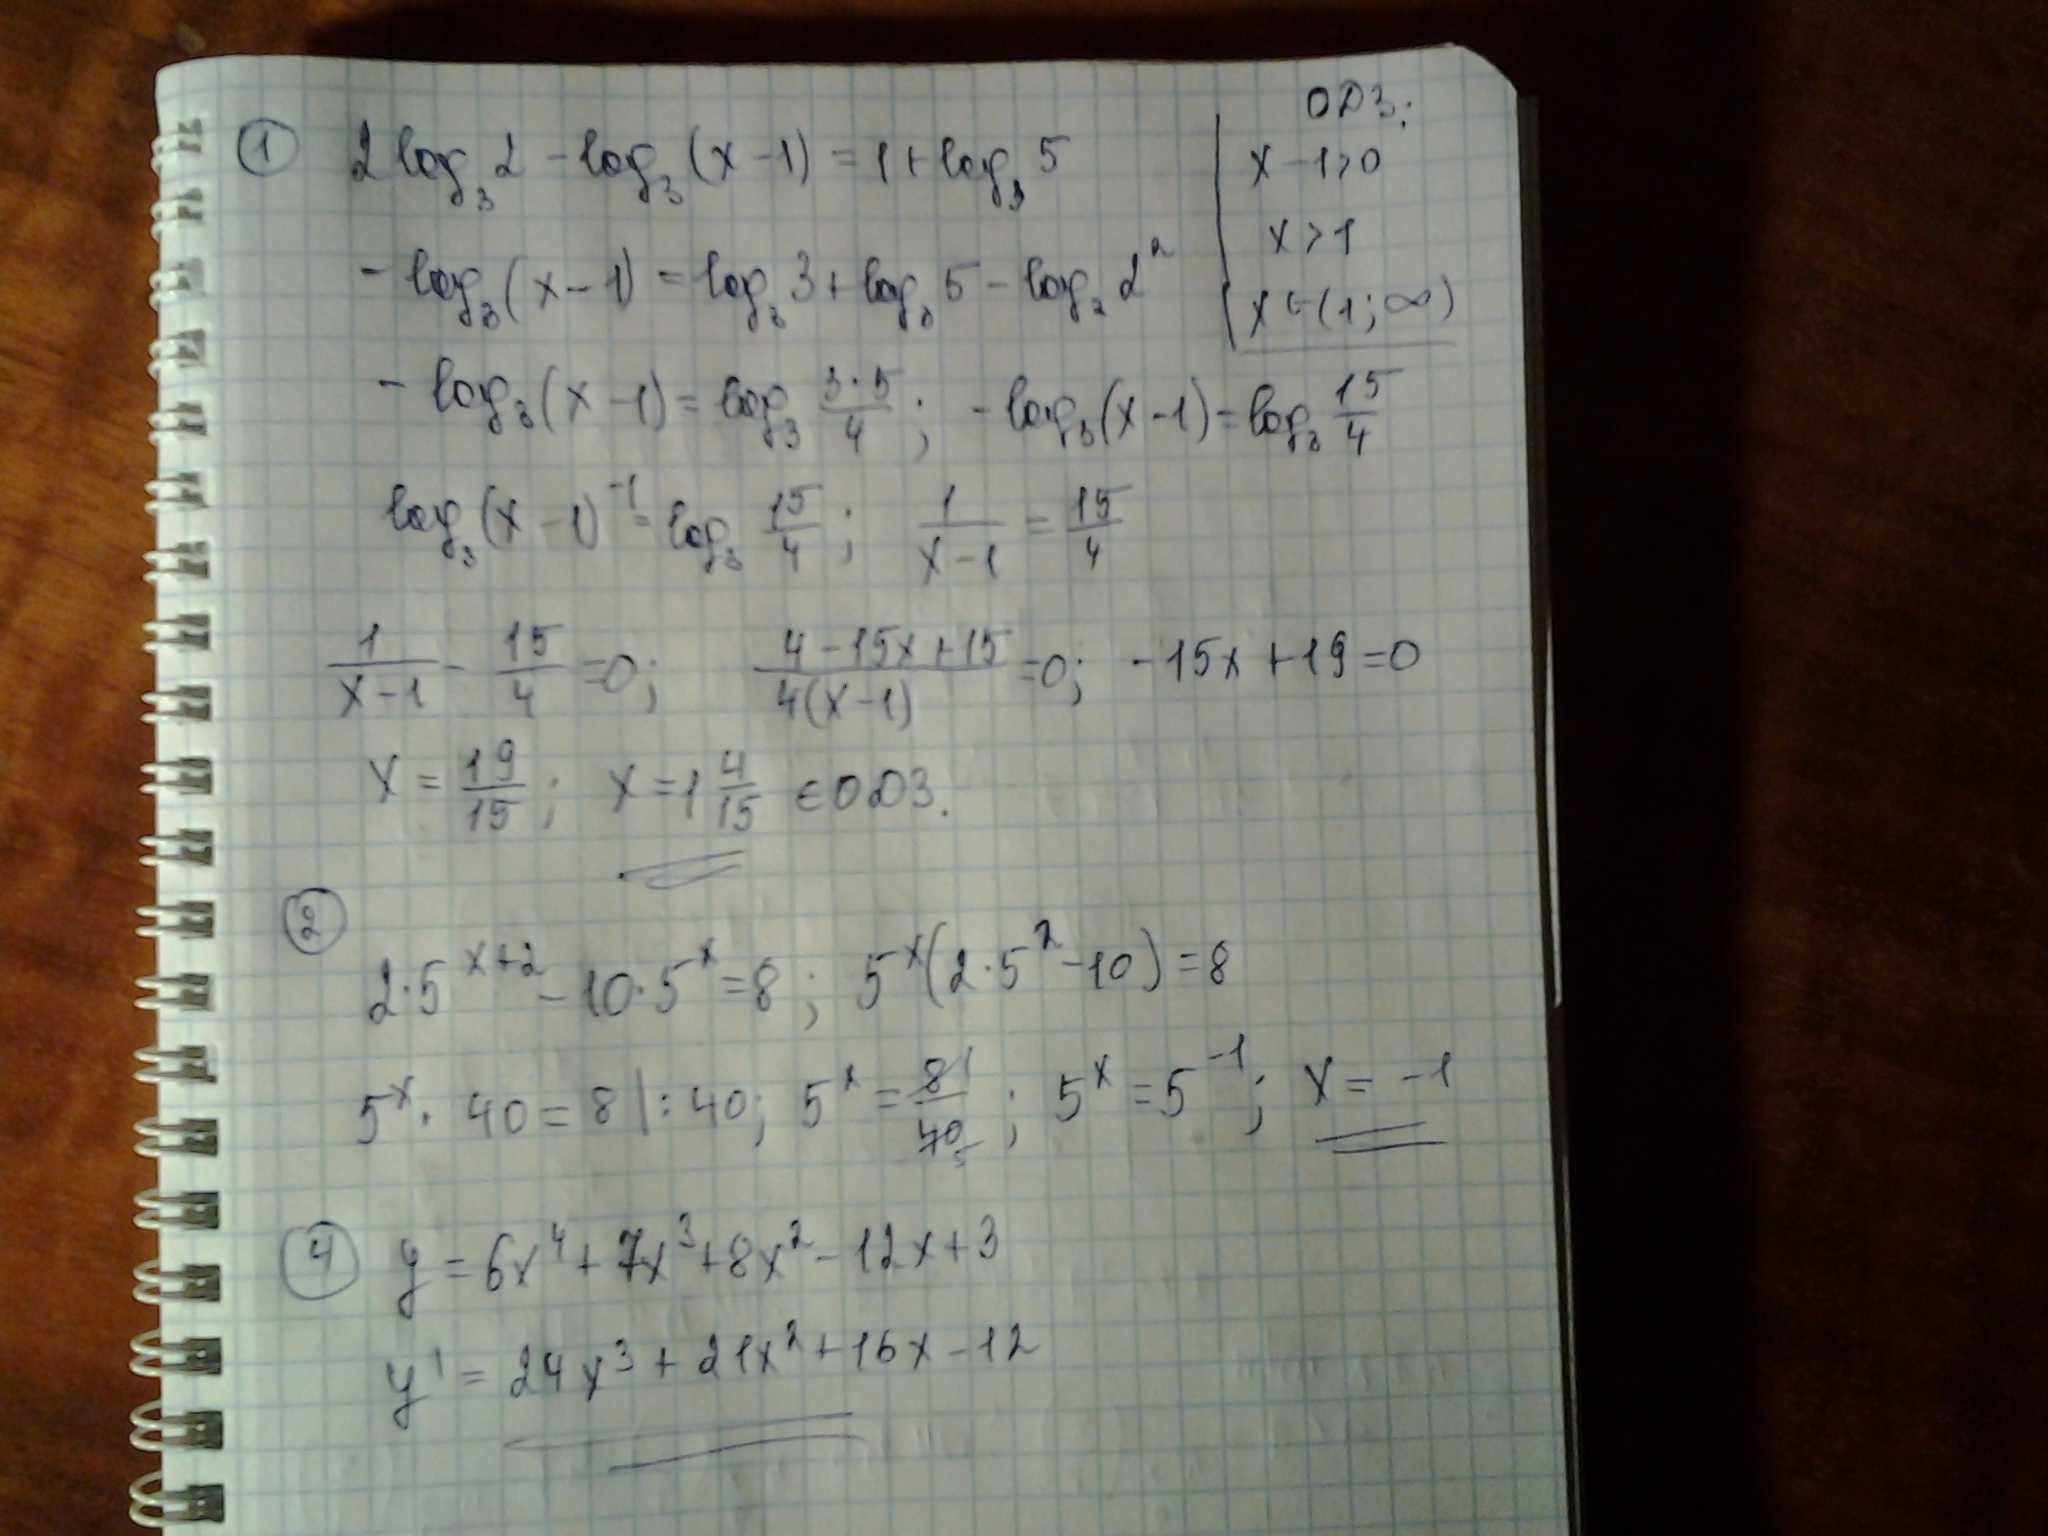 ① 2log₃2 - log₃(x-1) = 1 + log₃5
ОДЗ:
x - 1 > 0
x > 1
x ∈ (1; ∞)
- log₃(x-1) = log₃3 + log₃5 - log₃2²
- log₃(x-1) = log₃ 3·5/4 ; - log₃(x-1) = log₃ 15/4
log₃(x-1)⁻¹ = log₃ 15/4 ; 1/(x-1) = 15/4
1/(x-1) - 15/4 = 0; (4-15x+15)/(4(x-1)) = 0; -15x+19=0
x = 19/15 ; x = 1 4/15 ∈ ОДЗ.
②
2·5ˣ⁺² - 10·5ˣ = 8 ; 5ˣ(2·5² - 10) = 8
5ˣ · 40 = 8 |: 40; 5ˣ = 8 1/40 5 ; 5ˣ = 5⁻¹; x = -1
④ y = 6x⁴ + 7x³ + 8x² - 12x + 3
y' = 24x³ + 21x² + 16x - 12